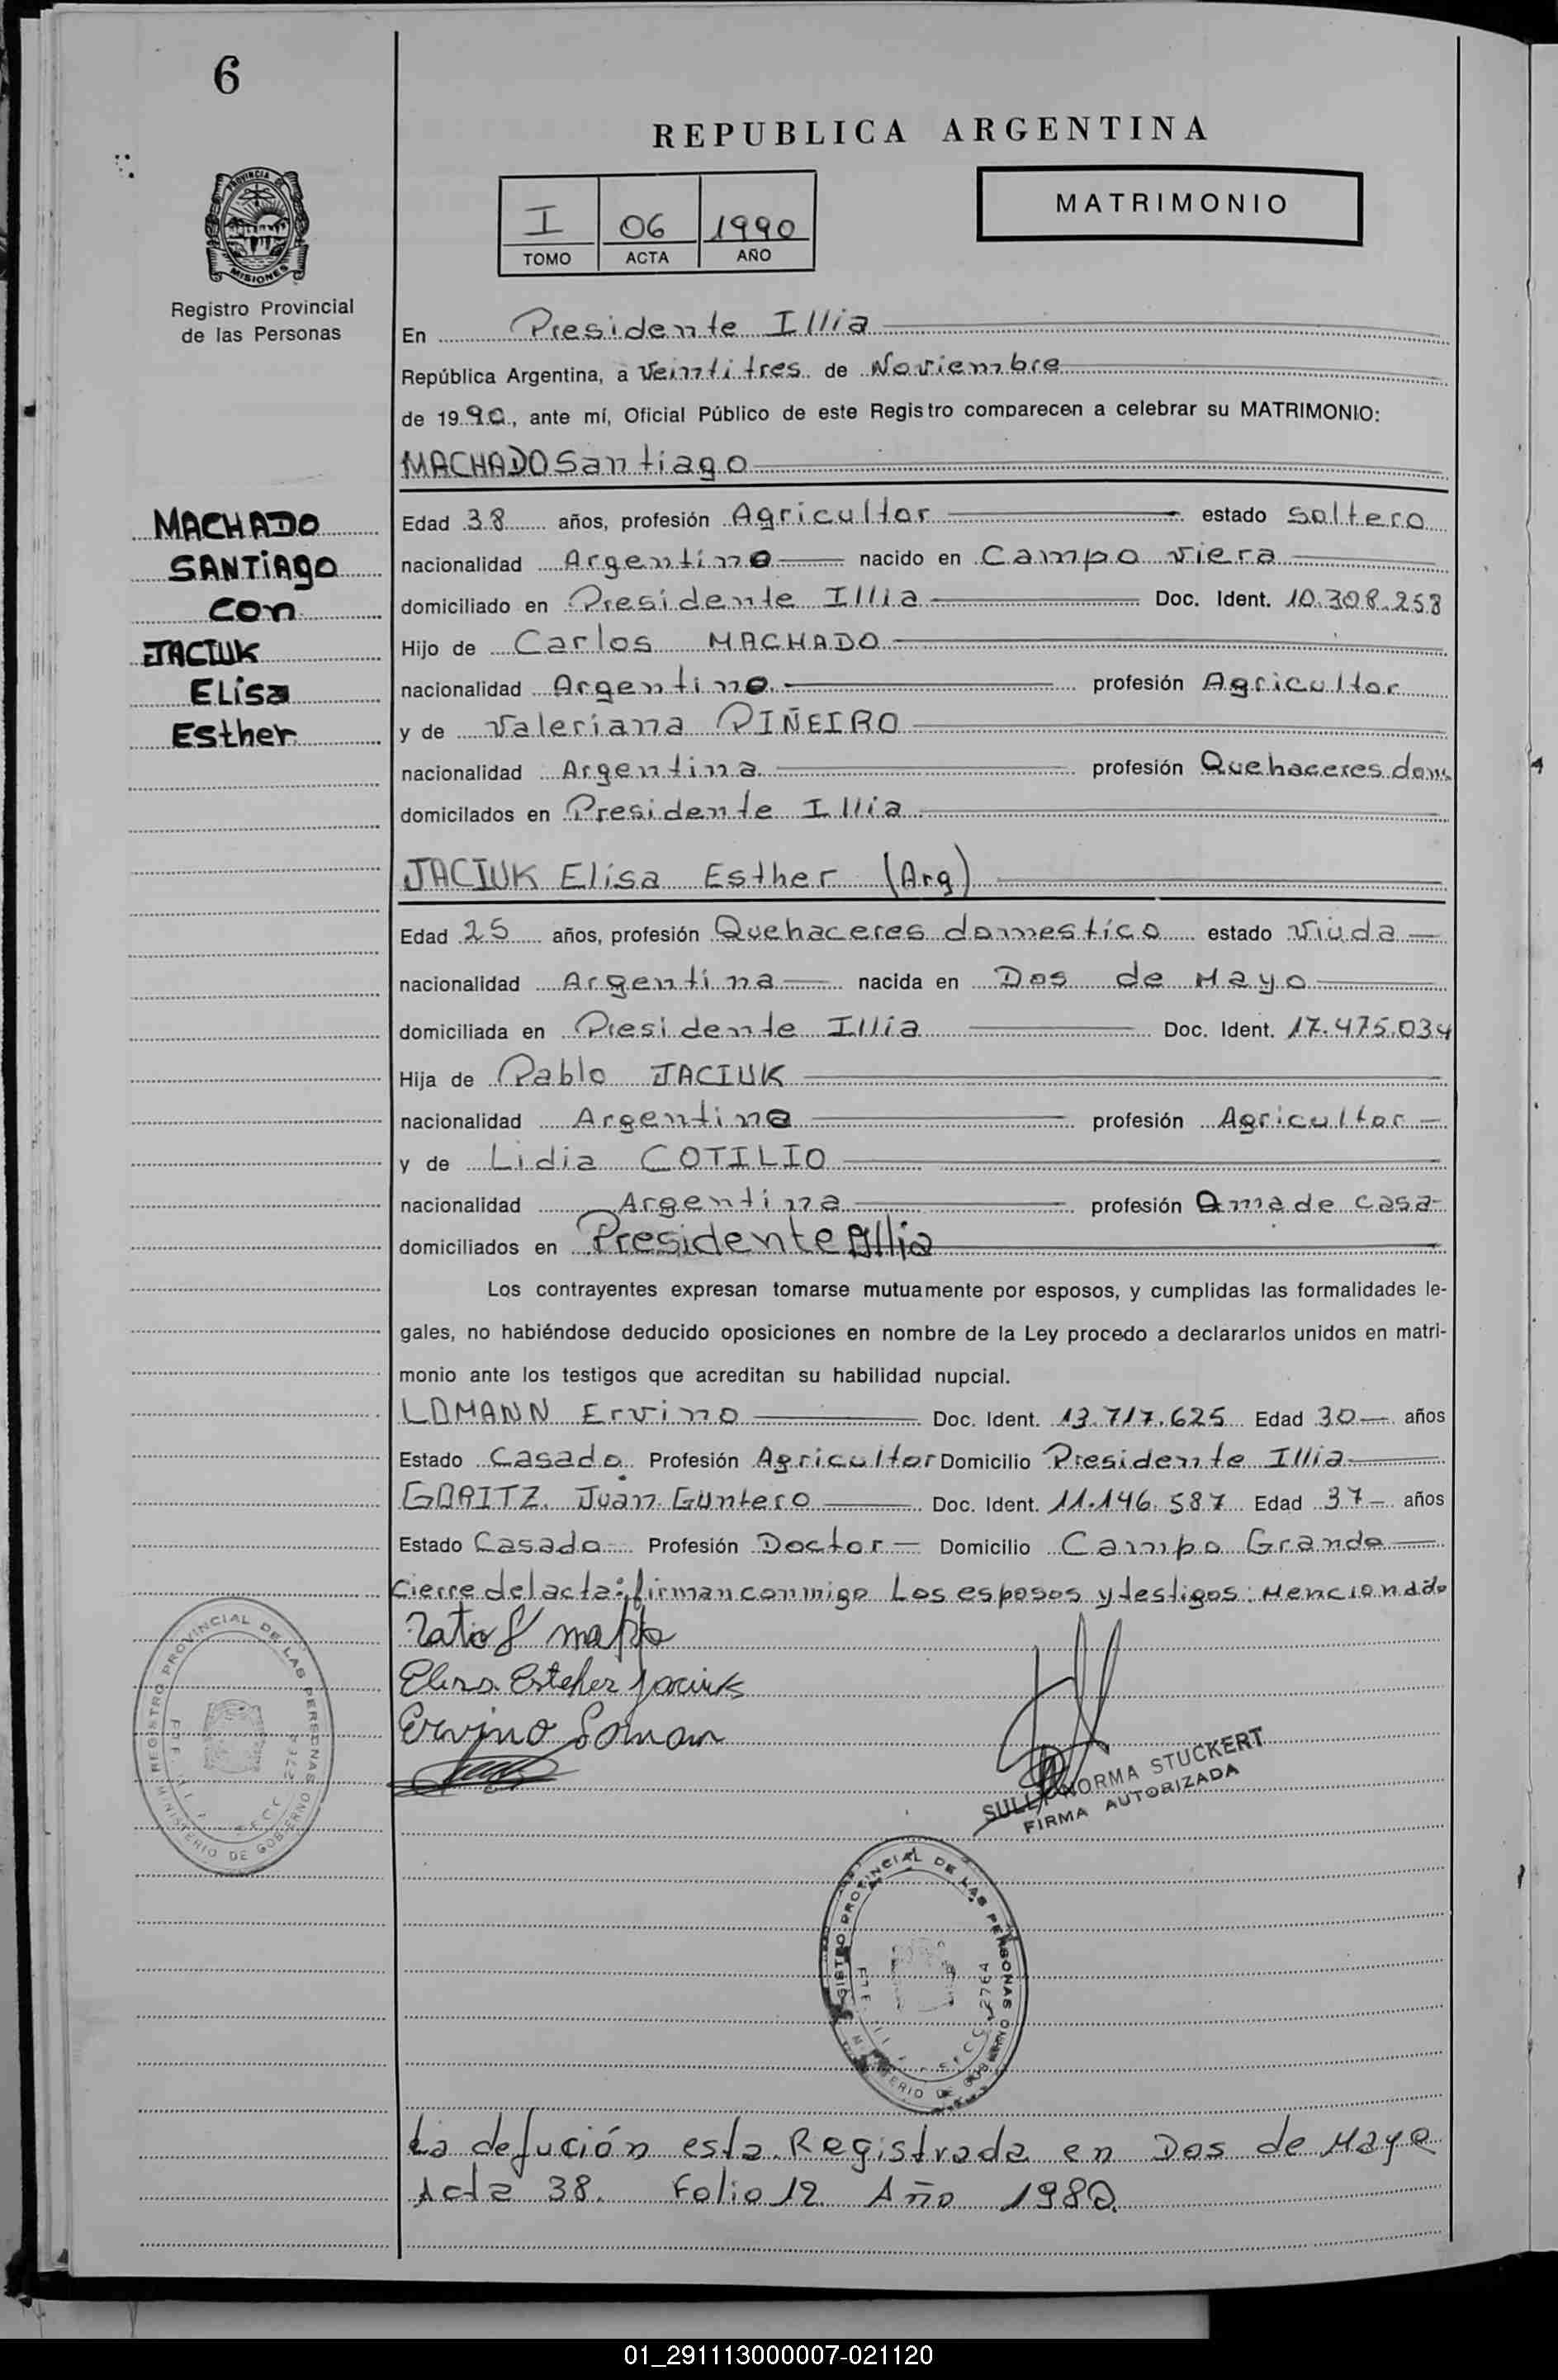 6
REPUBLICA ARGENTINA
PROVINCIA DE MISIONES
I 06 1990
TOMO ACTA AÑO
MATRIMONIO
Registro Provincial
de las Personas
En Presidente Illia
República Argentina, a veintitres de Noviembre
de 1990, ante mí, Oficial Público de este Registro comparecen a celebrar su MATRIMONIO:
MACHADO Santiago
MACHADO
SANTiAgo
con
JACIUK
ELisa
Esther
Edad 38 años, profesión Agricultor estado soltero
nacionalidad Argentino nacido en Campo Viera
domiciliado en Presidente Illia Doc. Ident. 10.308.258
Hijo de Carlos MACHADO
nacionalidad Argentino profesión Agricultor
y de Valeriana PIÑEIRO
nacionalidad Argentina profesión Quehaceres dom.
domicilados en Presidente Illia
JACIUK Elisa Esther (Arg)
Edad 25 años, profesión Quehaceres domestico estado Viuda
nacionalidad Argentina nacida en Dos de Mayo
domiciliada en Presidente Illia Doc. Ident. 17.475.034
Hija de Pablo JACIUK
nacionalidad Argentino profesión Agricultor
y de Lidia COTILIO
nacionalidad Argentina profesión Ama de casa
domiciliados en Presidente Illia
Los contrayentes expresan tomarse mutuamente por esposos, y cumplidas las formalidades le-
gales, no habiéndose deducido oposiciones en nombre de la Ley procedo a declararlos unidos en matri-
monio ante los testigos que acreditan su habilidad nupcial.
LOMANN Ervino Doc. Ident. 13.717.625 Edad 30 años
Estado Casado Profesión Agricultor Domicilio Presidente Illia
GORITZ Juan Guntero Doc. Ident. 11.146.587 Edad 37 años
Estado Casado Profesión Doctor Domicilio Campo Grande
Cierre del acta: firman conmigo Los esposos y testigos: Mencionado
Elisa Esteher Jaciuk
Ervino Loman
SULLY NORMA STUCKERT
FIRMA AUTORIZADA
REGISTRO PROVINCIAL DE LAS PERSONAS
MINISTERIO DE GOBIERNO
2764
REGISTRO PROVINCIAL DE LAS PERSONAS
MINISTERIO DE GOBIERNO
2764
La defución esta Registrada en Dos de Mayo
Acta 38. Folio 12 Año 1980.
01_291113000007-021120